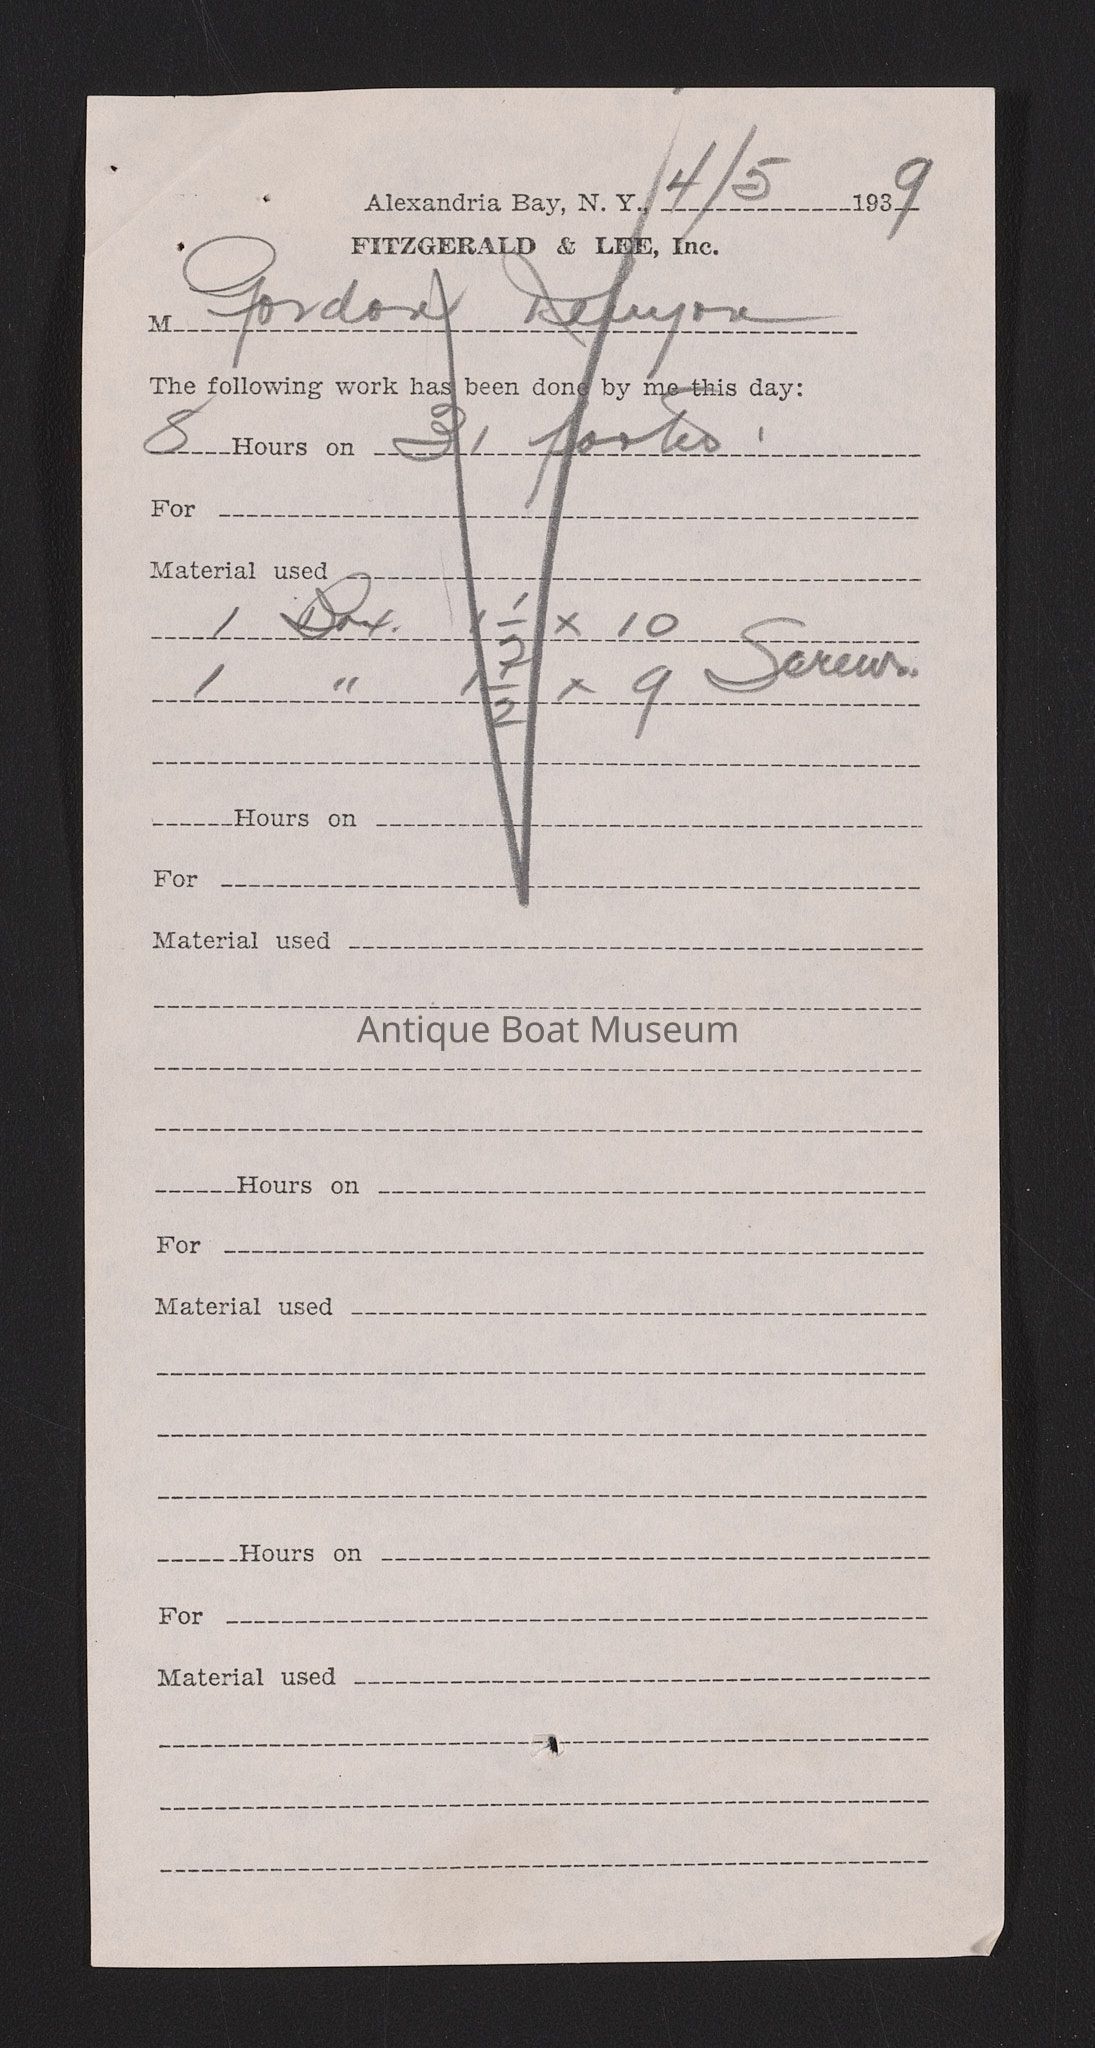 Alexandria Bay, N. Y., 4/5 1939
FITZGERALD & LEE, Inc.
M Gordon
The following work has been done by me this day:
8 Hours on 31
For
Material used
1 Box. 1 1/2 x 10
1 " 1 1/2 x 9 Screws.
Hours on
For
Material used
Antique Boat Museum
Hours on
For
Material used
Hours on
For
Material used